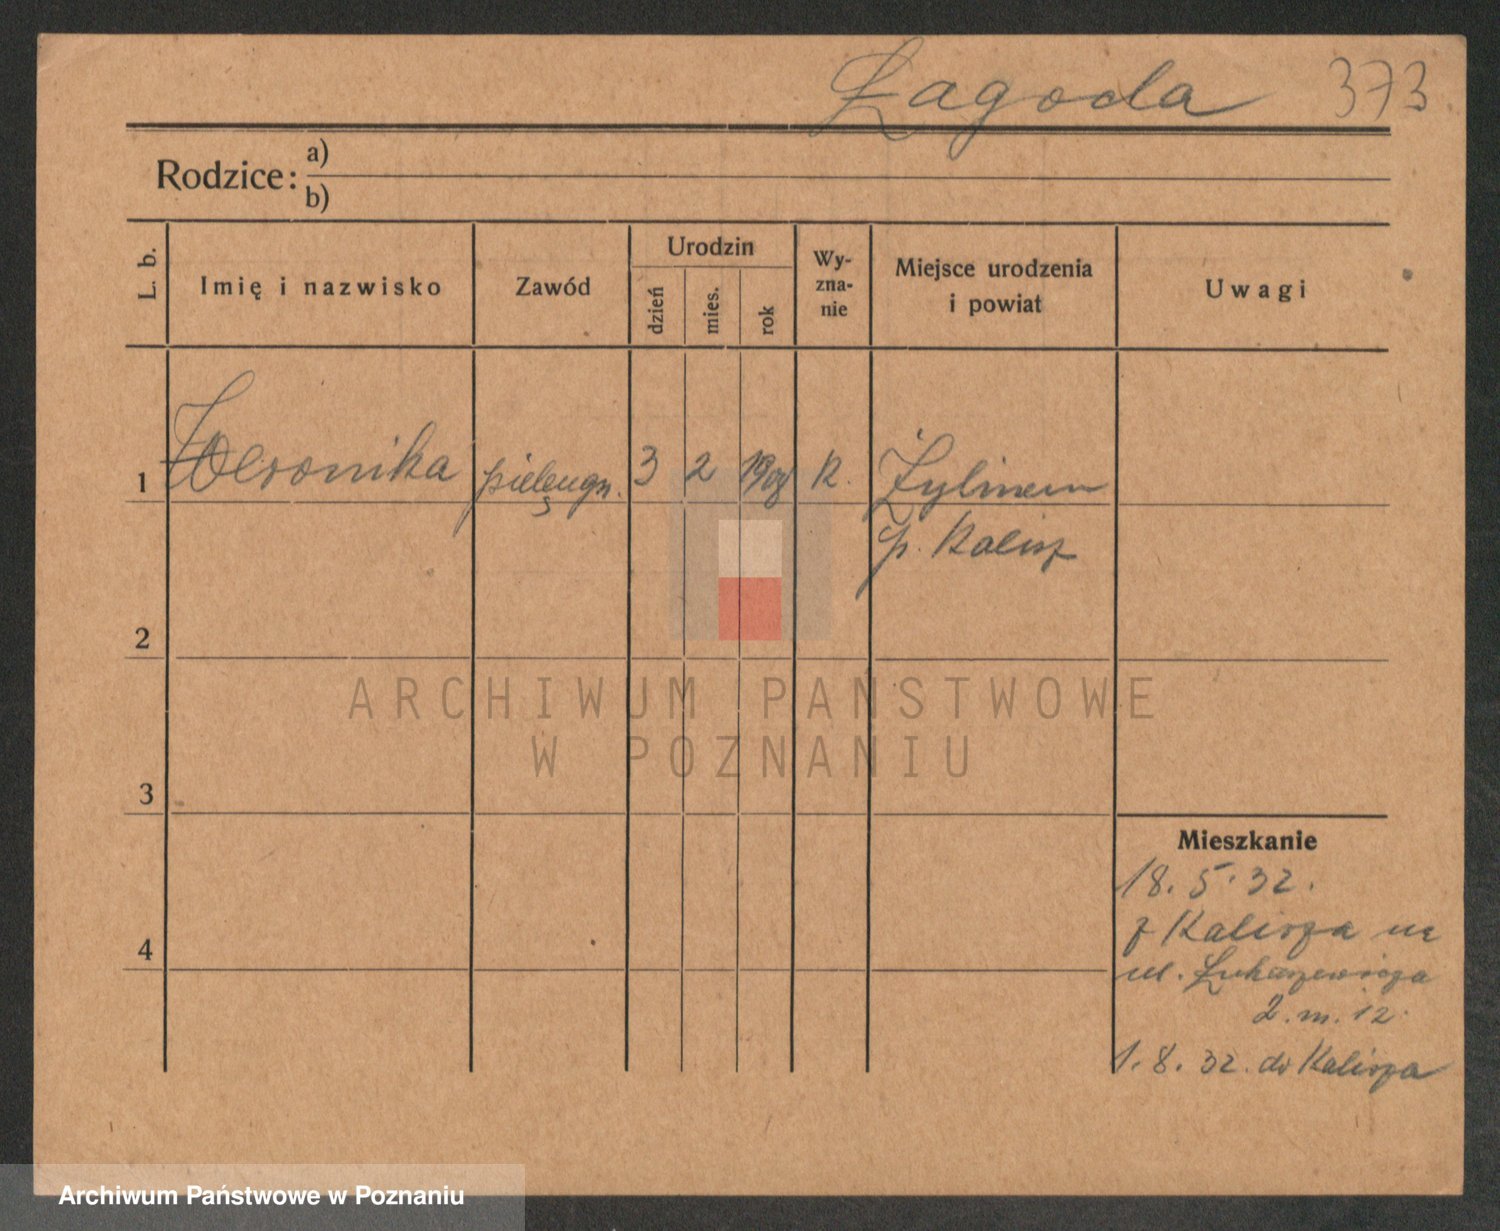 Łagoda 373
Rodzice: a)
b)
L. b. Imię i nazwisko Zawód Urodzin dzień mies. rok Wy-zna-nie Miejsce urodzenia i powiat Uwagi
1 Weronika pielęngn. 3 2 1908 R.
p. Kalisz
2
ARCHIWUM PAŃSTWOWE
W POZNANIU
3
Mieszkanie
18. 5. 32.
z Kalisza na
4
ul. Łukaszewicza
2. m. 12.
1. 8. 32. do Kalisza
Archiwum Państwowe w Poznaniu